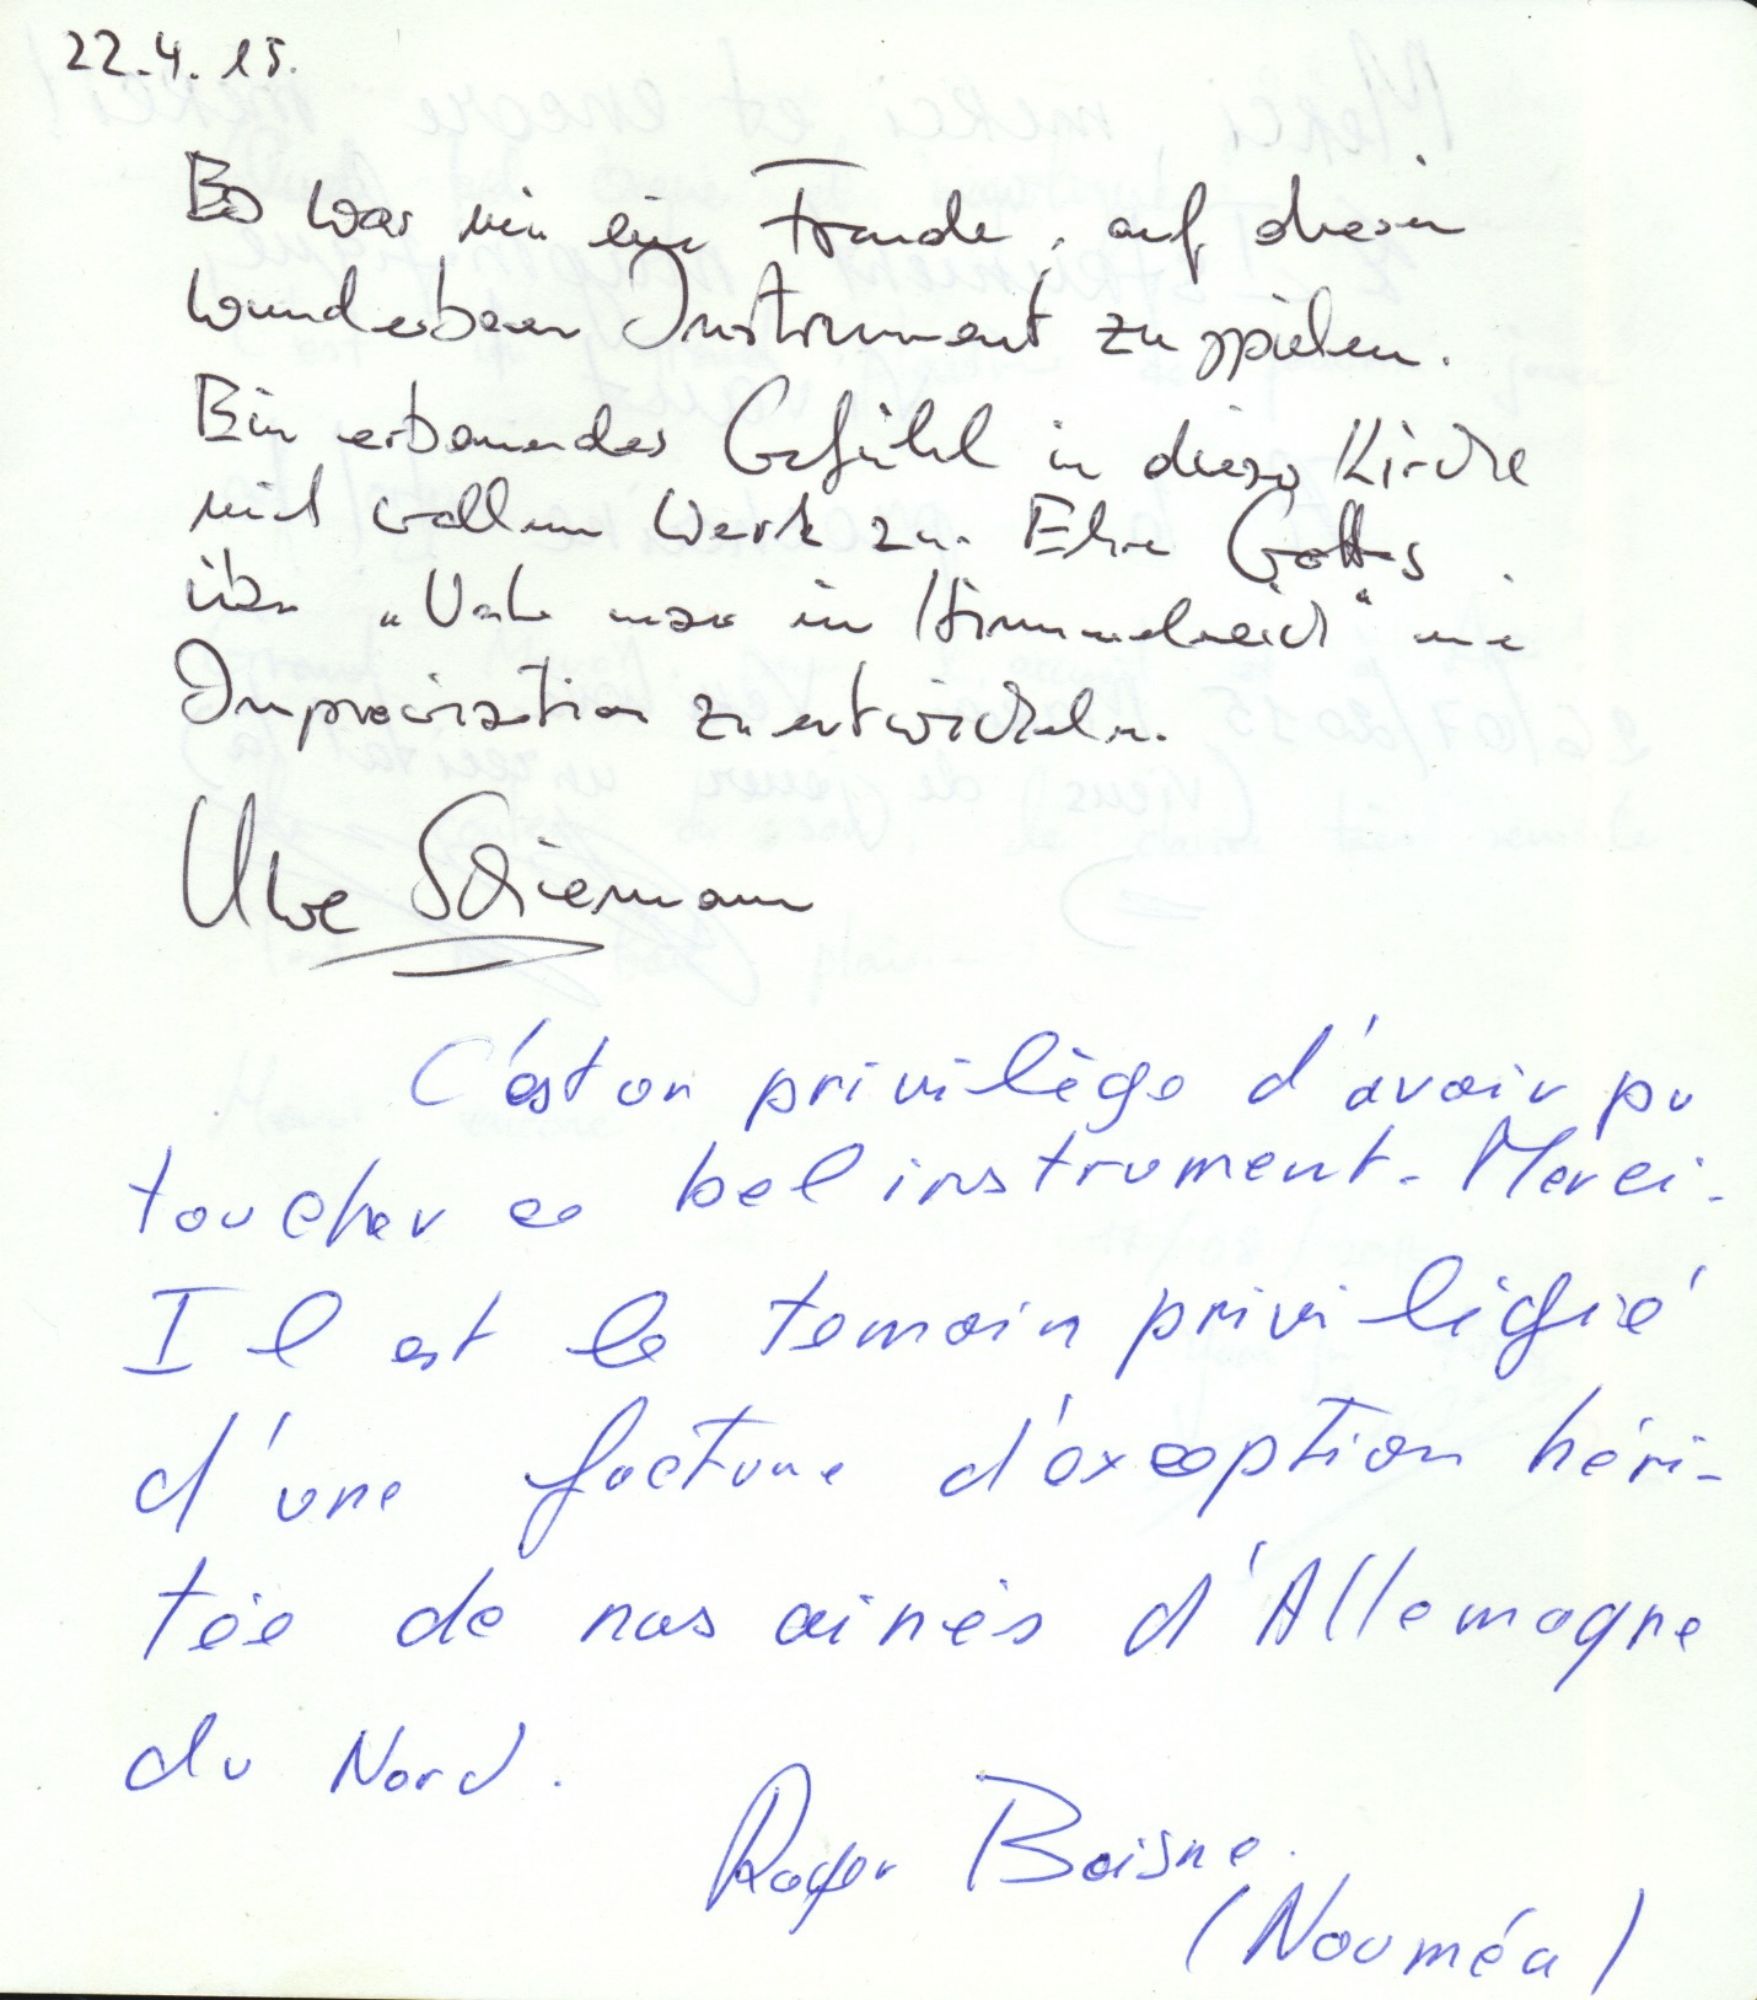 22.4.15.
Es war mir eine Freude, auf diesem
wunderbaren Instrument zu spielen.
Ein erbauendes Gefühl in dieser Kirche
mit vollem Werk zur Ehre Gottes
über "Vater unser im Himmelreich" eine
Improvisation zu entwickeln.
Uwe Schiemann
C'est un privilège d'avoir pu
toucher ce bel instrument. Merci.
Il est le temoin privilégié
d'une facture d'exception héri-
tée de nos ainés d'Allemagne
du Nord.
Roger Boisne.
(Nouméa)